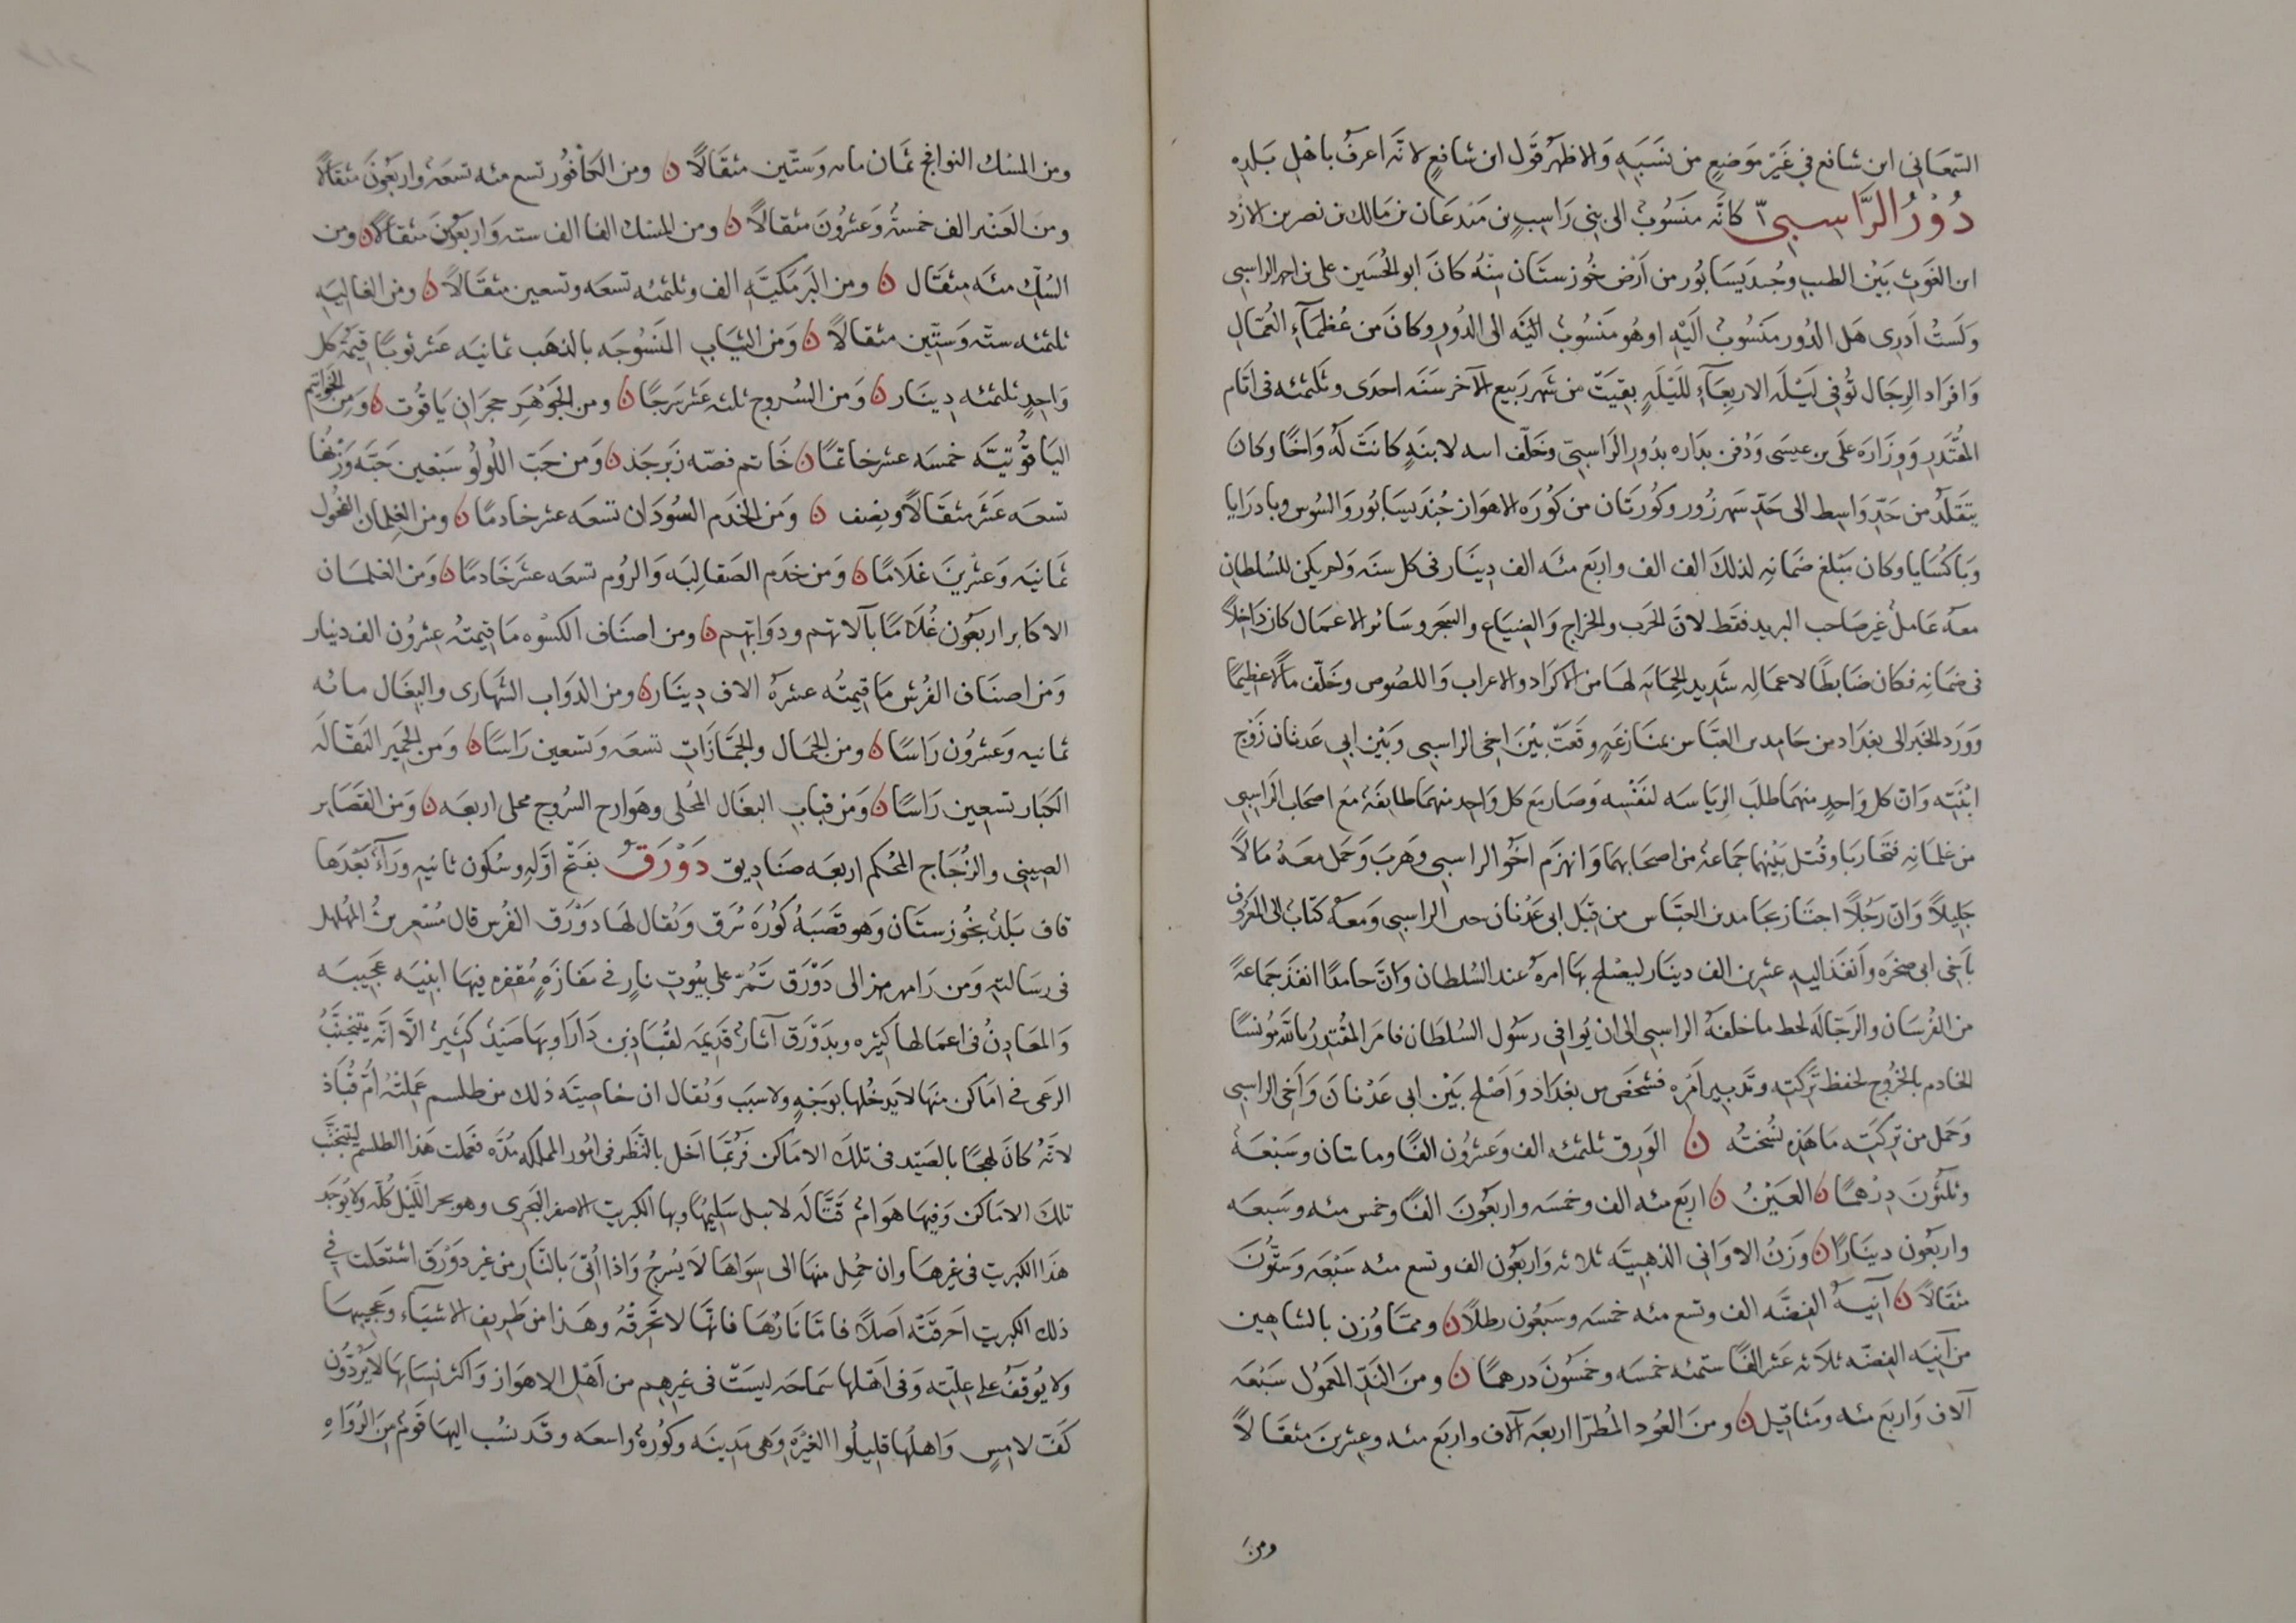 السمعاني ابن شافع في غير موضع من نسبه والاظهر قول ابن شافع لانه اعرف باهل بلده
دور الراسبي كانه منسوب الى بني راسب بن ميدعان بن مالك بن نصر بن الازد
ابن الغوث بين الطيب وجنديسابور من ارض خوزستان منه كان ابو الحسين علي بن احمد الراسبي
ولست ادرى هل الدور منسوب اليه او هو منسوب اليه الى الدور وكان من عظماء العمال
وافراد الرجال توفي ليلة الاربعاء لليلة بقيت من شهر ربيع الآخر سنه احدى وثلثمئه في ايام
المقتدر ووزاره علي بن عيسى ودفن بداره بدور الراسبي وخلف ابنه لابنه كانت له واخا وكان
يتقلد من حد واسط الى حد شهرزور وكورتان من كوره الاهواز جنديسابور والسوس وبادرايا
وباكسايا وكان مبلغ ضمانه لذلك الف الف واربع مئه الف دينار في كل سنه ولم يكن للسلطان
معه عامل غير صاحب البريد فقط لان الحرب والخراج والضياع والشجر وسائر الاعمال كان داخلا
في ضمانه فكان ضابطا لاعماله شديد الحمايه لها من الاكراد والاعراب واللصوص وخلف مالا عظيما
وورد الخبر الى بغداد من حامد بن العباس بمنازعه وقعت بين اخي الراسبي وبين ابي عدنان زوج
ابنته وان كل واحد منهما طلب الرياسه لنفسه وصار مع كل واحد منهما طايفة مع اصحاب الراسبي
من غلمانه فتحاربا وقتل بينهما جماعة من اصحابهما وانهزم اخو الراسبي وهرب وحمل معه مالا
جليلا وان رجلا اجتاز بحامد بن العباس من قبل ابي عدنان ختن الراسبي ومعه كتاب الى المعروف
باخي ابي صخره وانفذ اليه عشرين الف دينار ليصلح بها امره عند السلطان وان حامدا انفذ جماعة
من الفرسان والرجاله لحفظ ما خلفه الراسبي الى ان يوافي رسول السلطان فامر المقتدر بالله مؤنسا
الخادم بالخروج لحفظ تركته وتدبير امره فشخص من بغداد واصلح بين ابي عدنان واخي الراسبي
وحمل من تركته ما هذه نسخته ن الورق ثلثمئه الف وعشرون الفا ومايتان وسبعة
وثلثون درهما ن العين ن اربع مئه الف وخمسه واربعون الفا وخمس مئه وسبعه
واربعون دينارا ن وزن الاواني الذهبيه ثلاثه واربعون الف وتسع مئه سبعه وستون
مثقالا ن آنية الفضه الف وتسع مئه خمسه وسبعون رطلا ن ومما وزن بالشاهين
من آنيه الفضه ثلاثه عشر الفا ستمئه خمسه وخمسون درهما ن ومن الند المعمول سبعه
آلاف واربع مئه ومثاقيل ن ومن العود المطرا اربعه آلاف واربع مئه وعشرين مثقالا
ومن
ومن المسك النوافج ثمان مايه وستين مثقالا ن ومن الكافور تسع مئه تسعة واربعون مثقالا
ومن العنبر الف خمسة وعشرون مثقالا ن ومن المسك الفا الف سته واربعون مثقالا ن ومن
السك مئه مثقال ن ومن البرمكيه الف وثلثمئه تسعه وتسعين مثقالا ن ومن الغاليه
ثلثمئه سته وستين مثقالا ن ومن الثياب المنسوجه بالذهب ثمانيه عشر ثوبا قيمة كل
واحد ثلثمئه دينار ن ومن السروج ثلثه عشر سرجا ن ومن الجوهر حجران ياقوت ن ومن الخواتيم
الياقوتيه خمسه عشر خاتما ن خاتم فصه زبرجد ن ومن حب اللولو سبعين حبه وزنها
تسعه عشر مثقالا ونصف ن ومن الخدم السودان تسعه عشر خادما ن ومن الغلمان الفحول
ثمانيه وعشرين غلاما ن ومن خدم الصقالبه والروم تسعه عشر خادما ن ومن الغلمان
الاكابر اربعون غلاما بآلاتهم ودوابهم ن ومن اصناف الكسوه ما قيمته عشرون الف دينار
ومن اصناف الفرش ما قيمته عشره الاف دينار ن ومن الدواب الشهاري والبغال مائه
ثمانيه وعشرون راسا ن ومن الجمال والجمازات تسعه وتسعين راسا ن ومن الحمير النقاله
الكبار تسعين راسا ن ومن قباب البغال المحلى وهوادج السروج محلى اربعه ن ومن الغضاير
الصيني والزجاج المحكم اربعه صناديق دورق بفتح اوله وسكون ثانيه وراء بعدها
قاف بلد بخوزستان وهو قصبة كوره سرق ويقال لها دورق الفرس قال مسعر بن المهلهل
في رسالته ومن رامهرمز الى دورق تمر على بيوت نار في مفازه مقفره فيها ابنيه عجيبه
والمعادن في اعمالها كثيره وبدورق آثار قديمه لقباذ بن دارا وبها صيد كثير الا انه يتجنب
الرعى في اماكن منها لا يدخلها بوجه ولا سبب ويقال ان خاصيته ذلك من طلسم عملته ام قباذ
لانه كان لهجا بالصيد في تلك الاماكن فربما اخل بالنظر في امور المملكه مده فعملت هذا الطلسم ليتجنب
تلك الاماكن وفيها هوام قتاله لا يبل سليمها وبها الكبريت الاصفر البحري وهو يجرى الليل كله ولا يوجد
هذا الكبريت في غيرها وان حمل منها الى سواها لا يسرج واذا اتى بالنار من غير دورق اشتعلت في
ذلك الكبريت احرقته اصلا فاما نارها فانها لا تحرقه وهذا من طريف الاشياء وعجيبها
ولا يوقف على علته وفي اهلها سماحه ليست في غيرهم من اهل الاهواز واكثر نسايها لا يرددن
كف لامس واهلها قليلوا الغيره وهي مدينه وكوره واسعه وقد نسب اليها قوم من الرواه